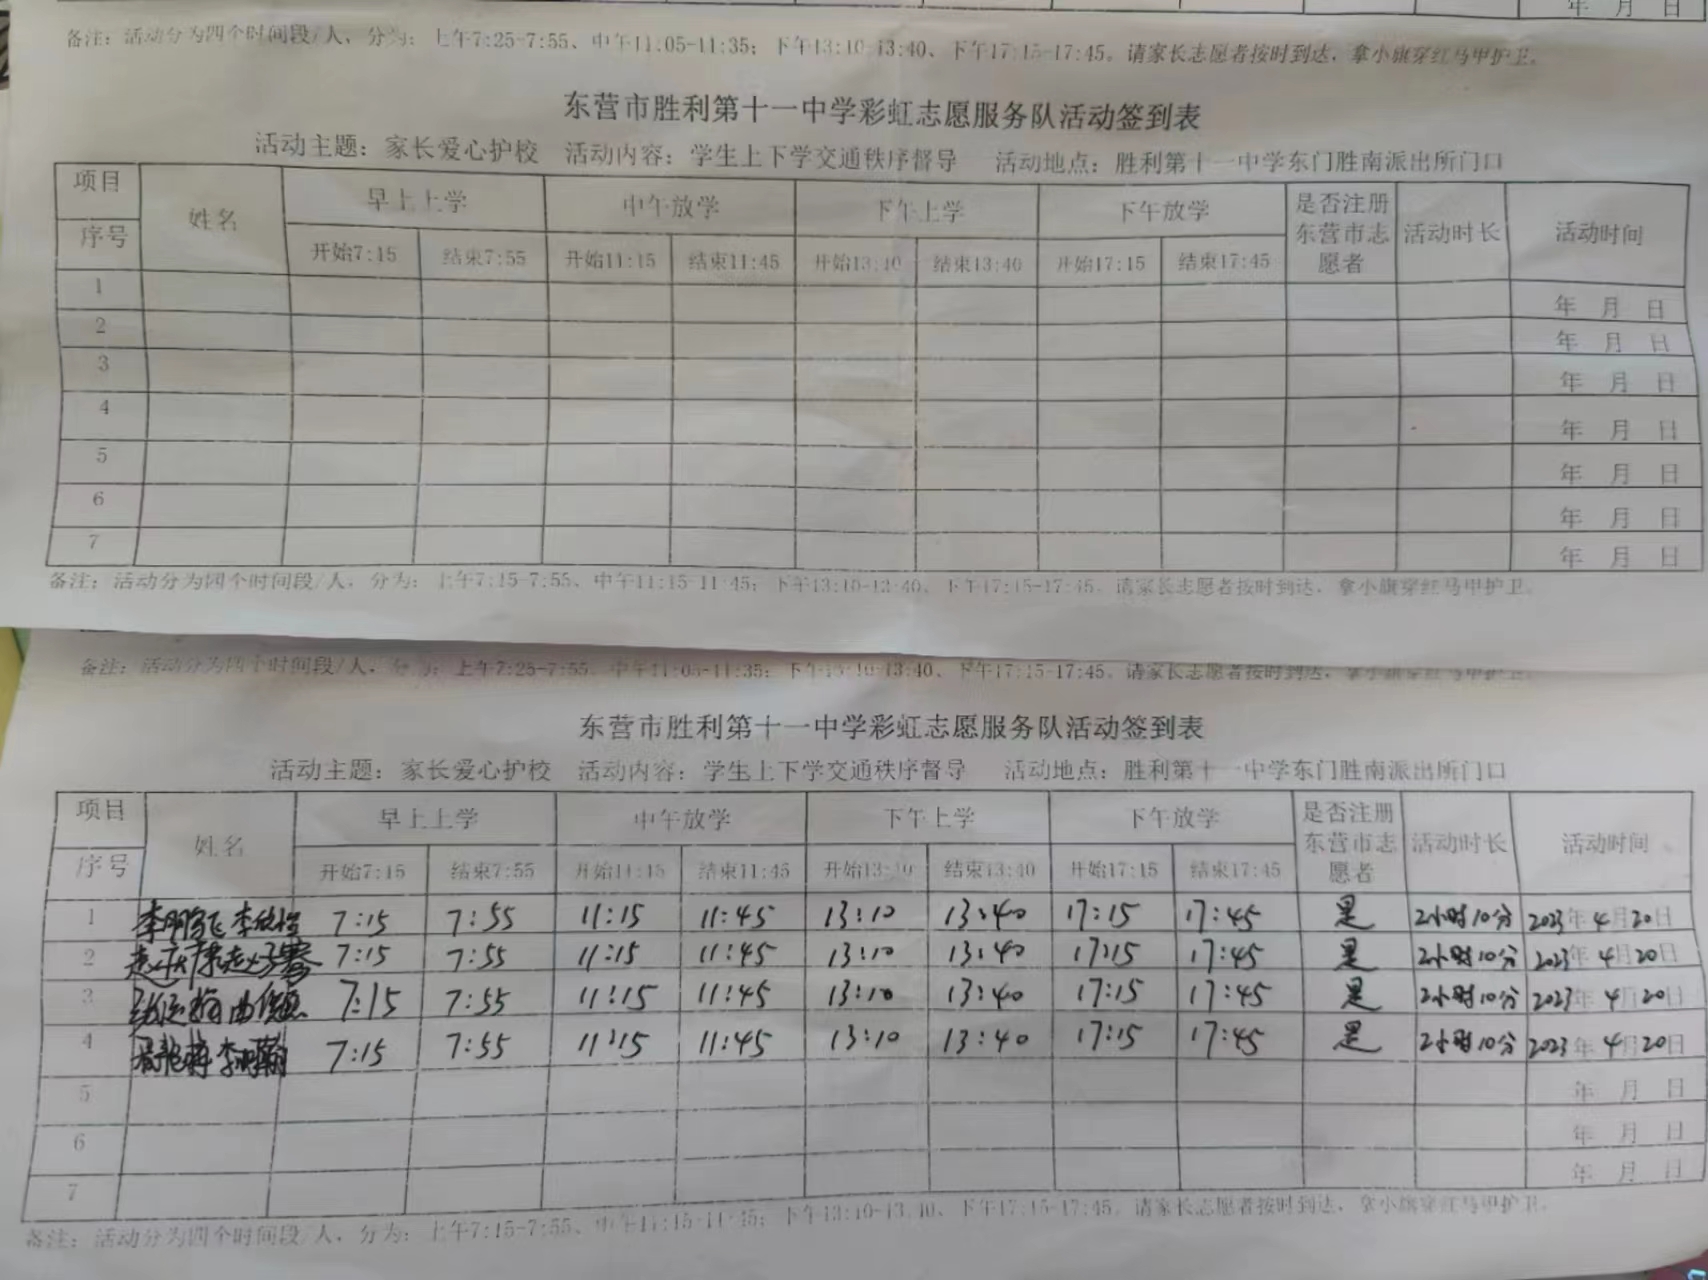 年 月 日
备注：活动分为四个时间段/人，分为：上午7:25-7:55、中午11:05-11:35；下午13:10-13:40、下午17:15-17:45。请家长志愿者按时到达，拿小旗穿红马甲护卫。
东营市胜利第十一中学彩虹志愿服务队活动签到表
活动主题：家长爱心护校 活动内容：学生上下学交通秩序督导 活动地点：胜利第十一中学东门胜南派出所门口
项目 序号 姓名 早上上学 中午放学 下午上学 下午放学 是否注册东营市志愿者 活动时长 活动时间
开始7:15 结束7:55 开始11:15 结束11:45 开始13:10 结束13:40 开始17:15 结束17:45
1 年 月 日
2 年 月 日
3 年 月 日
4 年 月 日
5 年 月 日
6 年 月 日
7 年 月 日
备注：活动分为四个时间段/人，分为：上午7:15-7:55、中午11:15-11:45；下午13:10-13:40、下午17:15-17:45。请家长志愿者按时到达，拿小旗穿红马甲护卫。
备注：活动分为四个时间段/人，分为：上午7:25-7:55、中午11:05-11:35；下午13:10-13:40、下午17:15-17:45。请家长志愿者按时到达，拿小旗穿红马甲护卫。
东营市胜利第十一中学彩虹志愿服务队活动签到表
活动主题：家长爱心护校 活动内容：学生上下学交通秩序督导 活动地点：胜利第十一中学东门胜南派出所门口
项目 序号 姓名 早上上学 中午放学 下午上学 下午放学 是否注册东营市志愿者 活动时长 活动时间
开始7:15 结束7:55 开始11:15 结束11:45 开始13:10 结束13:40 开始17:15 结束17:45
1 李鹏飞 7:15 7:55 11:15 11:45 13:10 13:40 17:15 17:45 是 2小时10分 2023年4月20日
2 7:15 7:55 11:15 11:45 13:10 13:40 17:15 17:45 是 2小时10分 2023年4月20日
3 7:15 7:55 11:15 11:45 13:10 13:40 17:15 17:45 是 2小时10分 2023年4月20日
4 7:15 7:55 11:15 11:45 13:10 13:40 17:15 17:45 是 2小时10分 2023年4月20日
5 年 月 日
6 年 月 日
7 年 月 日
备注：活动分为四个时间段/人，分为：上午7:15-7:55、中午11:15-11:45；下午13:10-13:40、下午17:15-17:45。请家长志愿者按时到达，拿小旗穿红马甲护卫。